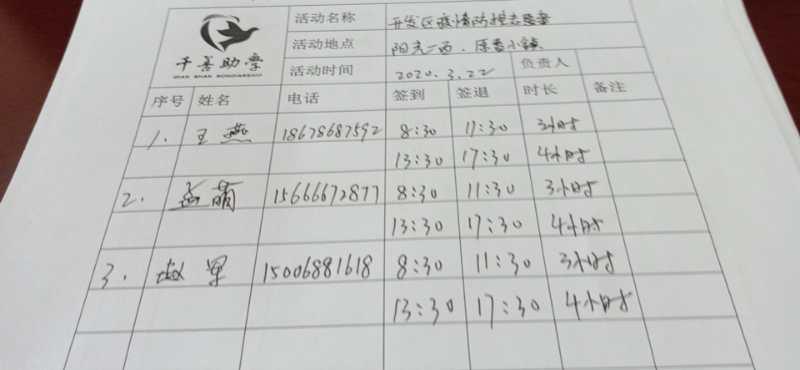 千善助学
活动名称 开发区疫情防控志愿者
活动地点
活动时间 2020.3.22 负责人
序号 姓名 电话 签到 签退 时长 备注
1. 王燕 18678687592 8:30 11:30 3小时
13:30 17:30 4小时
2. 孟萌 15666672877 8:30 11:30 3小时
13:30 17:30 4小时
3. 军 15006881618 8:30 11:30 3小时
13:30 17:30 4小时